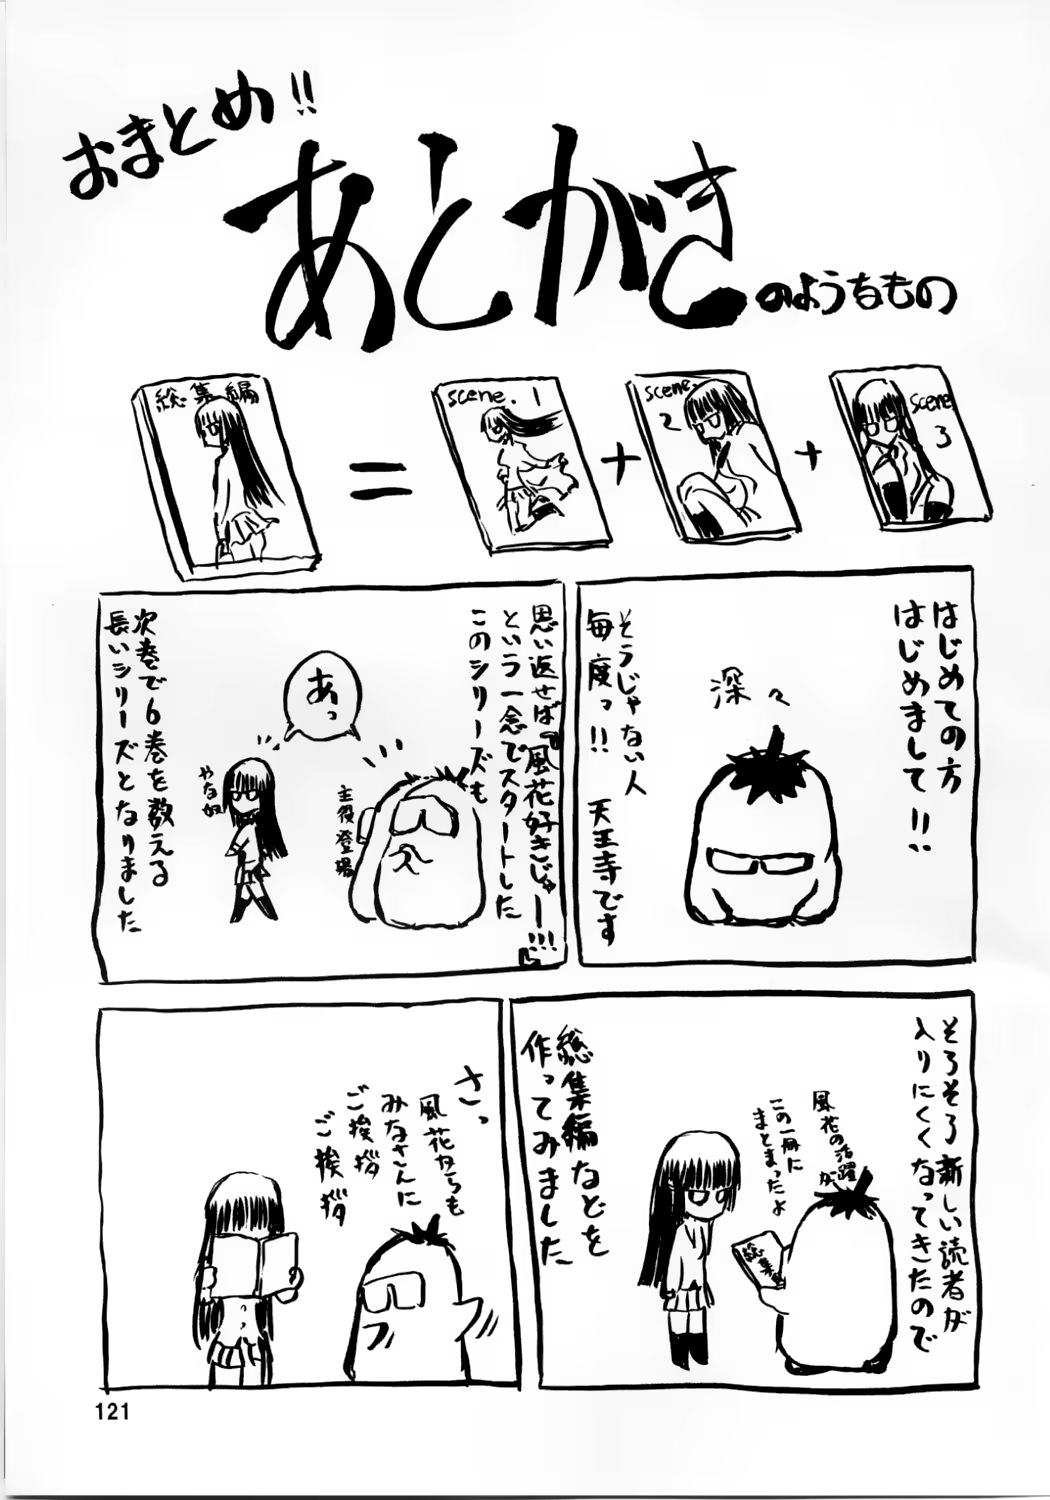 おまとめ!!
あとがき
のようなもの
総集編
=
scene. 1
+
scene. 2
+
scene. 3
はじめての方
はじめまして!!
深々
そうじゃない人
毎度っ!! 天王寺です
思い返せば『風花好きじゃー!!!』
という一念でスタートした
このシリーズも
あっ
主役登場
やなか
次巻で6巻を数える
長いシリーズとなりました
そろそろ新しい読者が
入りにくくなってきたので
風花の活躍が
この一冊に
まとまったよ
総集編
総集編などを
作ってみました
さっ
風花からも
みなさんに
ご挨拶
ご挨拶
121